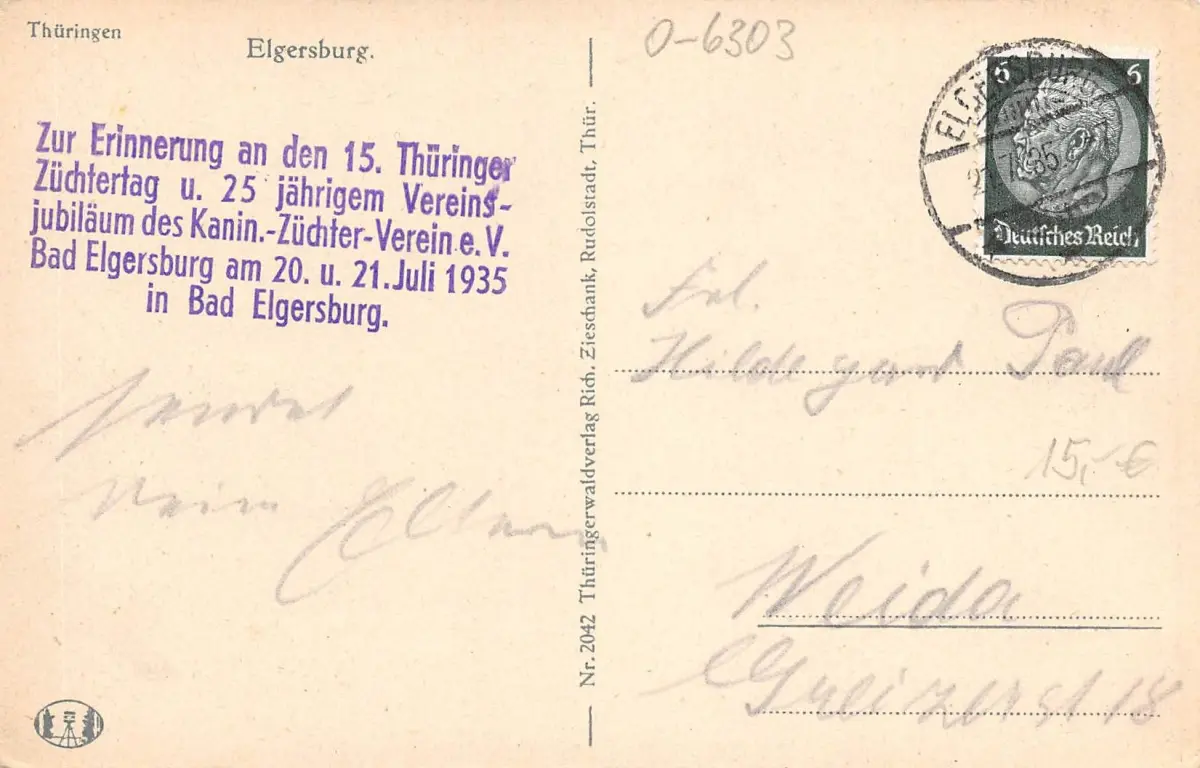 Thüringen
Elgersburg.
Zur Erinnerung an den 15. Thüringer
Züchtertag u. 25 jährigem Vereins-
jubiläum des Kanin.-Züchter-Verein e. V.
Bad Elgersburg am 20. u. 21. Juli 1935
in Bad Elgersburg.
sendet
Nr. 2042 Thüringerwaldverlag Rich. Zieschank, Rudolstadt, Thür.
0-6303
6 6
ELGERSBURG
7.35
Deutsches Reich
Frl.
Hildegard Paul
15,- €
Weida
Greizerst 18